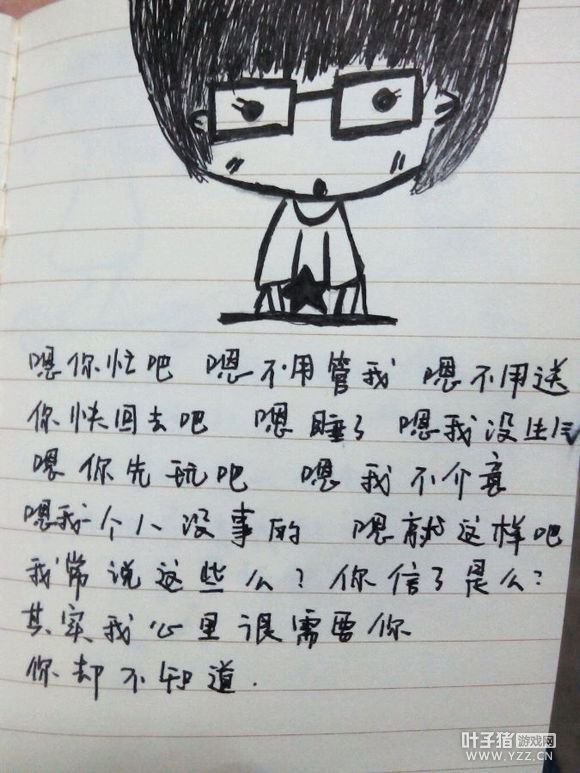 嗯你忙吧 嗯不用管我 嗯不用送
你快回去吧 嗯睡了 嗯我没生气
嗯你先玩吧 嗯我不介意
嗯我一个人没事的 嗯就这样吧
我常说这些么?你信了是么?
其实我心里很需要你
你却不知道.
叶子猪游戏网
www.YZZ.CN